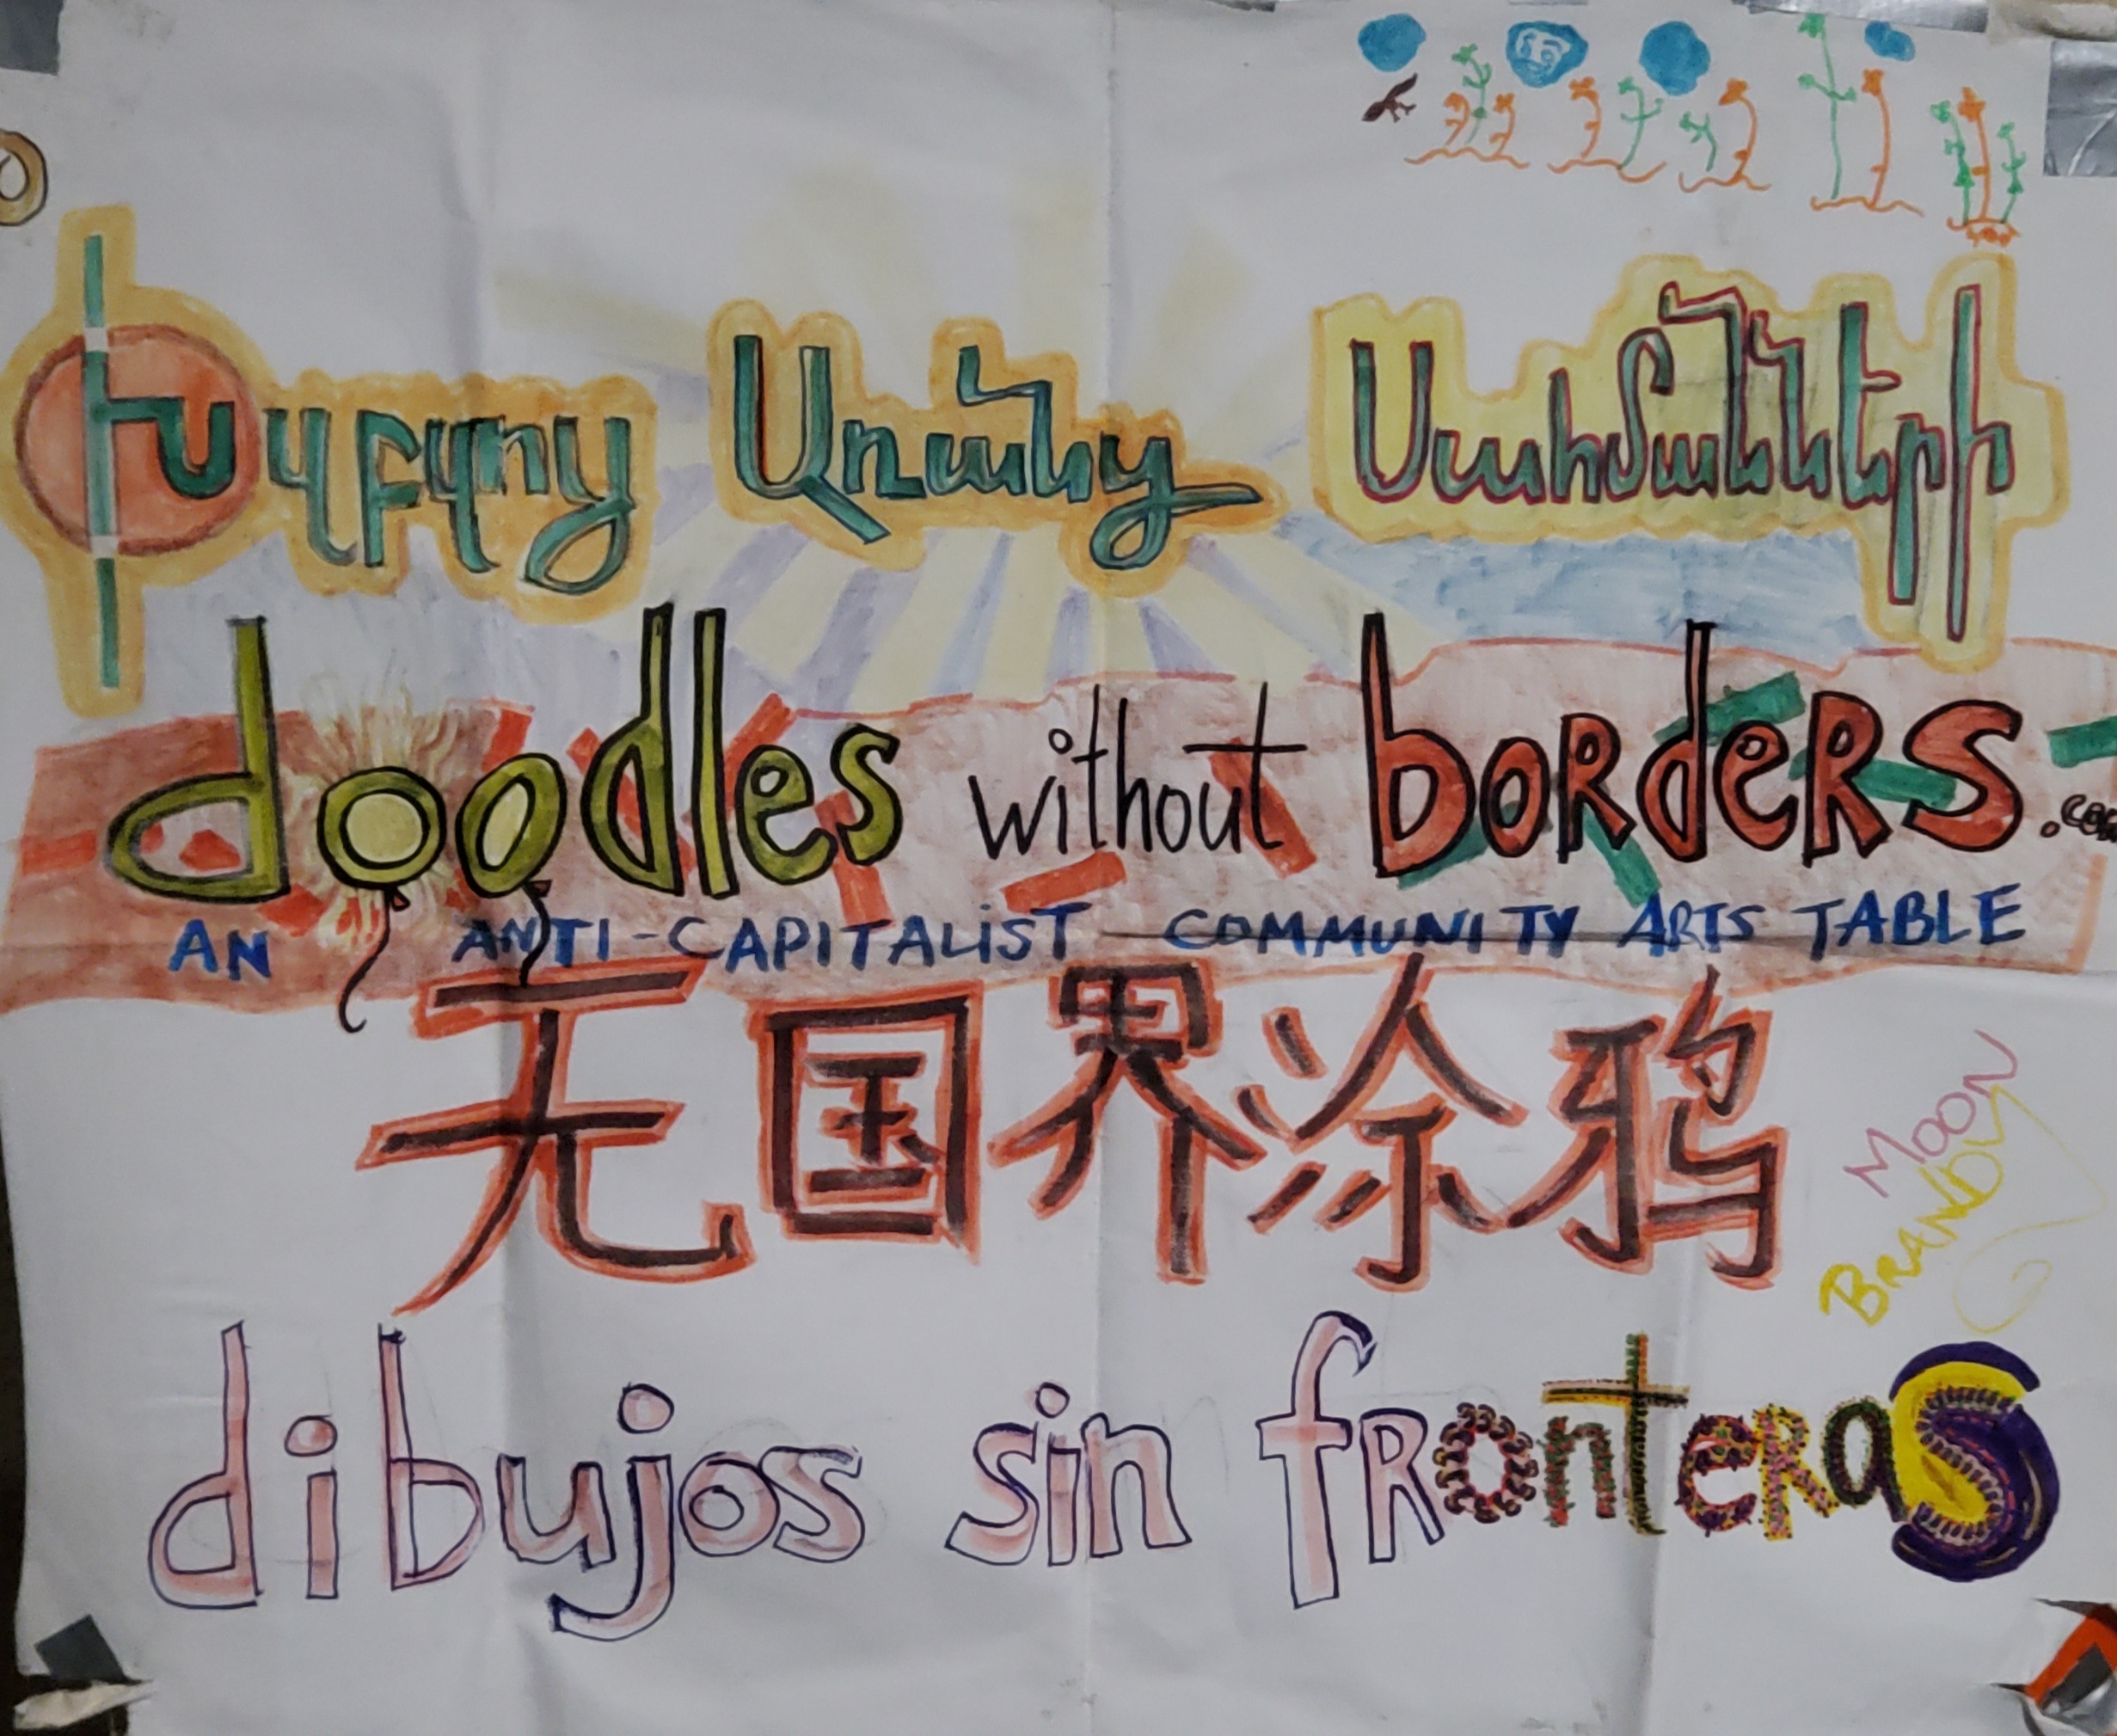 Խզբզոց Առանց Սահմանների
doodles without borders.com
AN ANTI-CAPITALiST COMMUNITY ARTS TABLE
无国界涂鸦
MOON
BRANDY
dibujos sin fRonteRas